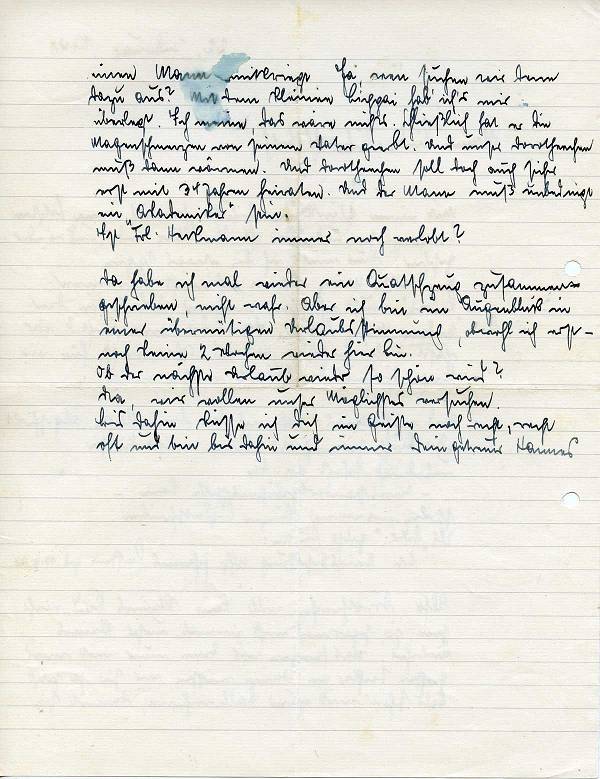 einen Mann mitkriegt. Ja, wen suchen wir denn
dazu aus? Mit dem kleinen hab ich's mir
überlegt. Ich meine, das wäre nichts. Schließlich hat er die
Magenschmerzen von seinem Vater geerbt. Und unser Dorothenchen
muß dann . Und Dorothenchen soll doch auch
erst mit Jahren heiraten. Und der Mann muß unbedingt
ein "Akademiker" sein.
Ist Frl. Heckmann immer noch verlobt?
Da habe ich mal wieder ein Quatschzeug zusammen=
geschrieben, nicht wahr. Aber ich bin im Augenblick in
einer übermütigen Urlaubsstimmung, obwohl ich erst-
noch keine 2 Wochen wieder hier bin.
Ob der nächste Urlaub wieder so schön wird?
Na, wir wollen unser Möglichstes versuchen.
Bis dahin küsse ich Dich im Geiste noch recht, recht
oft und bin bis dahin und immer Dein getreuer Hannes